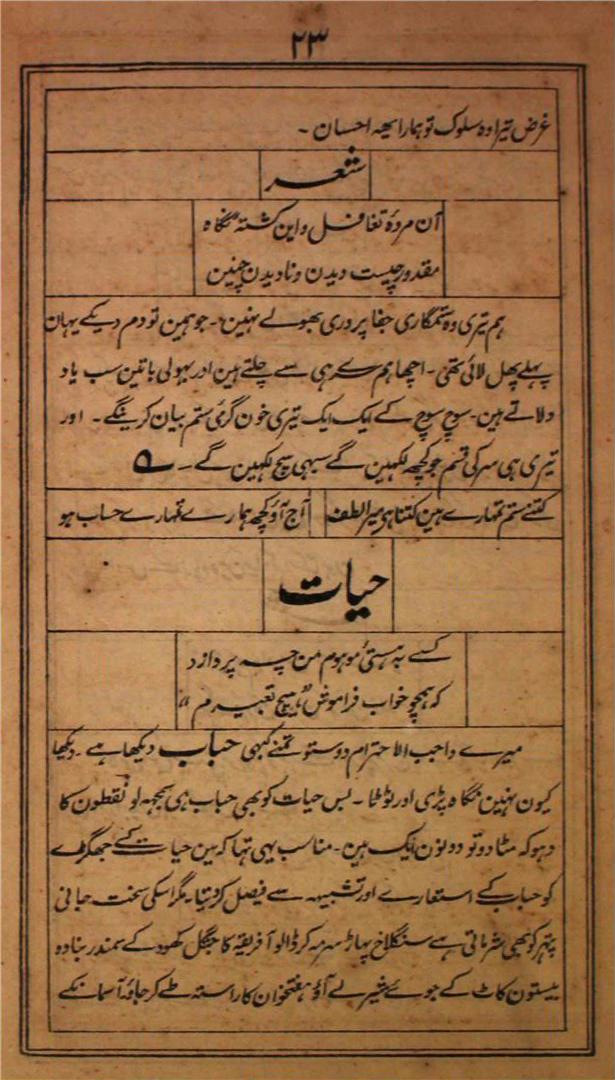 ۲۳
غرض تیرا وہ سلوک تو ہمارا یہہ احسان ۔
شعر
آن مردۂ تغافل و این کشتۂ نگاہ
مقدور چیست دیدن و نادیدن چنین
ہم تیری وہ ستمگاری جفا پروری بھولے نہین ۔ جو ہمین تو دم دیکے یہان
پہلے پھل لائی تھی ۔ اچھا ہم سرے ہی سے چلتے ہین اور بہولی باتین سب یاد
دلاتے ہین ۔ سوچ سوچ کے ایک ایک تیری خون گرئ ستم بیان کرینگے ۔ اور
تیری ہی سر کی قسم جو کچھ لکھین گے سبھی سچ لکھین گے ۔
کتنے ستم تمہارے ہین کتنا ہی میرا لطف آج آؤ کچھ ہمارے تمہارے حساب ہو
حیات
کسے بہ ہستئ موہوم من چہ پردازد
کہ ہمچو خواب فراموش ہیچ تعبیرم "
میرے واجب الاحترام دوستو تمنے کبھی حباب دیکھا ہے ۔ دیکھا
کیون نہین نگاہ پڑی اور ٹوٹا ۔ بس حیات کو بھی حباب ہی سمجھہ لو نقطون کا
دہوکہ مٹا دو تو دونون ایک ہین ۔ مناسب یہی تہا کہ مین حیات کے جھگڑے
کو حباب کے استعارے اور تشبیہہ سے فیصل کر دیتا ۔ مگر اسکی سخت جانی
پتہر کو بھی شرماتی ہے سنگلاخ پہاڑ سرمہ کر ڈالو آفریقہ کا جنگل کھود کے سمندر بنا دو
بیستون کاٹ کے جوئے شیر لے آؤ ہفتخوان کا راستہ طے کر جاؤ آسمان کے